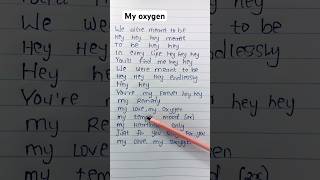 My oxygen
We were meant to be
Hey hey hey meant
To be hey hey
In every life hey hey hey
You'll find me hey hey
We were meant to be
Hey Hey Hey endlessly
Hey hey
You're my forever hey hey
my Remedy
my love, my oxygen
my mood (2x)
my only
Just for you only for you
my love, my oxygen